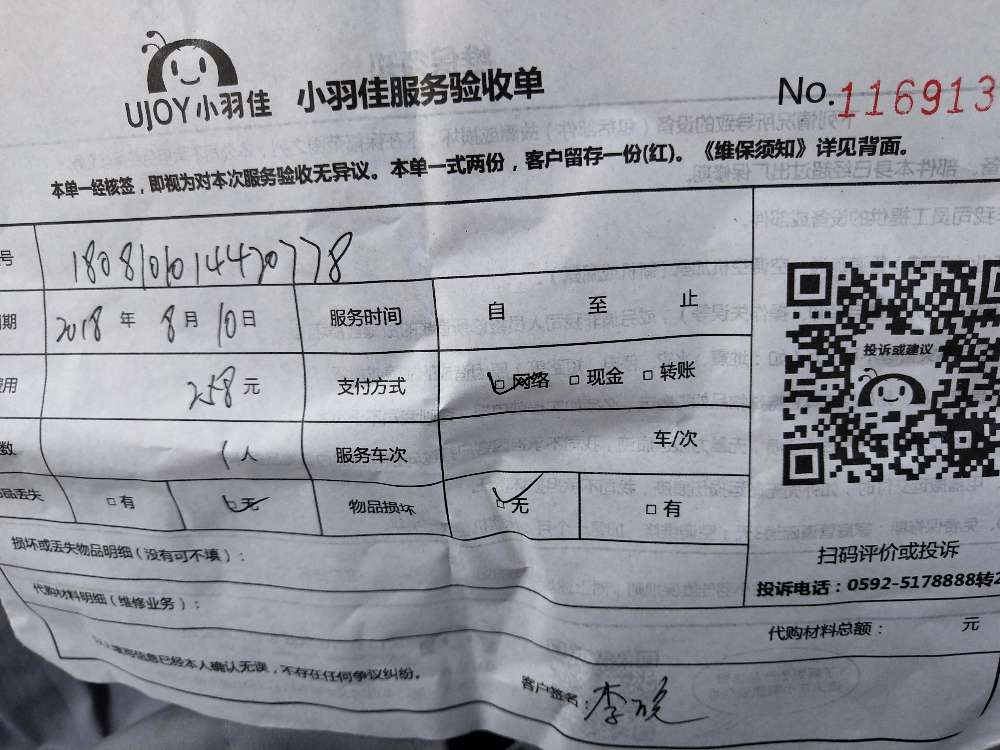 UJOY小羽佳 小羽佳服务验收单
No.116913
本单一经核签，即视为对本次服务验收无异议。本单一式两份，客户留存一份(红)。《维保须知》详见背面。
号 180810101442077 8
期 2018 年 8 月 10 日 服务时间 自 至 止
费用 258 元 支付方式 □网络 □现金 □转账
数 1 人 服务车次 车/次
品丢失 □有 □无 物品损坏 □无 □有
投诉或建议
损坏或丢失物品明细（没有可不填）：
扫码评价或投诉
投诉电话：0592-5178888转2
代购材料明细（维修业务）：
代购材料总额： 元
信息已经本人确认无误，不存在任何争议纠纷。
客户签名：李晓